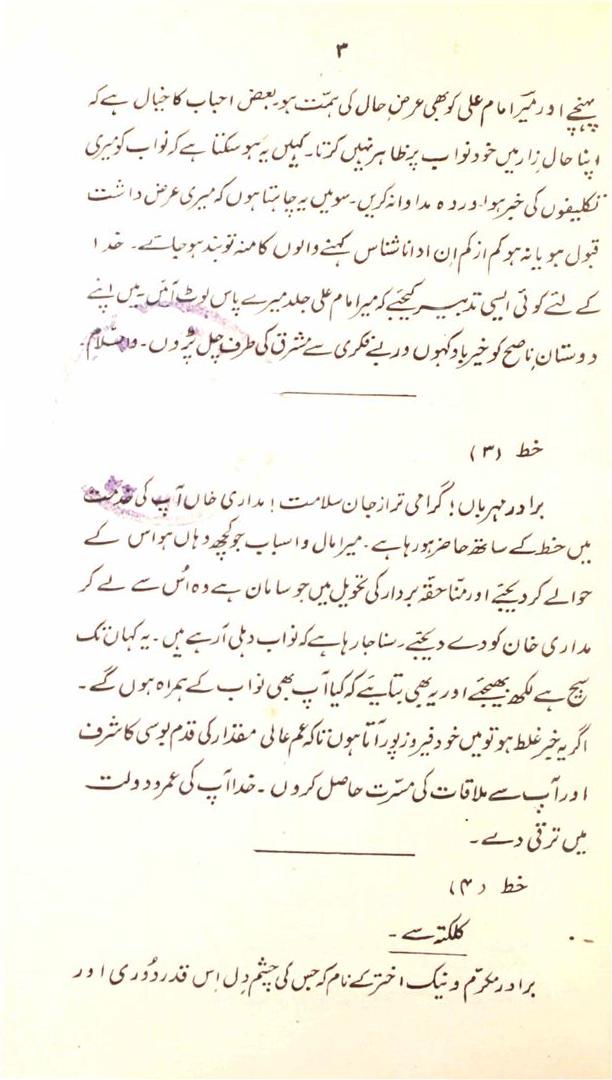 ۳
پہنچے اور میرا امام علی کو بھی عرضِ حال کی ہمّت ہو۔ بعض احباب کا خیال ہے کہ
اپنا حال زار میں خود نواب پر ظاہر نہیں کرتا۔ کہیں یہ ہو سکتا ہے کہ نواب کو میری
تکلیفوں کی خبر ہو اور وہ مداوا نہ کریں۔ سو میں یہ چاہتا ہوں کہ میری عرض داشت
قبول ہو یا نہ ہو کم از کم ان ادا ناشناس کہنے والوں کا منہ تو بند ہو جائے۔ خدا
کے لئے کوئی ایسی تدبیر کیجئے کہ میر امام علی جلد میرے پاس لوٹ آئیں میں اپنے
دوستانِ ناصح کو خیر باد کہوں اور بے فکری سے مشرق کی طرف چل پڑوں۔ والسّلام۔
خط (۳)
برادر مہرباں! گرامی تر از جان سلامت! مداری خاں آپ کی خدمت
میں خط کے ساتھ حاضر ہو رہا ہے۔ میرا مال و اسباب جو کچھ وہاں ہو اس کے
حوالے کر دیجئے اور منّا حقہ بردار کی تحویل میں جو سامان ہے وہ اُس سے لے کر
مداری خان کو دے دیجئے۔ سنا جا رہا ہے کہ نواب دہلی آ رہے ہیں۔ یہ کہاں تک
سچ ہے لکھ بھیجئے اور یہ بھی بتایئے کہ کیا آپ بھی نواب کے ہمراہ ہوں گے۔
اگر یہ خبر غلط ہو تو میں خود فیروز پور آتا ہوں تاکہ عم عالی مقدار کی قدم بوسی کا شرف
اور آپ سے ملاقات کی مسرّت حاصل کروں۔ خدا آپ کی عمر و دولت
میں ترقی دے۔
خط (۴)
کلکتہ سے۔
برادر مکرّم و نیک اختر کے نام کہ جس کی چشمِ دل اس قدر دُوری اور